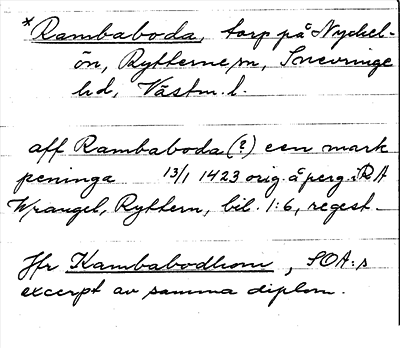 *Rambaboda, torp på Nyckel-
ön, Rytterne sn, Snevringe
hd, Västm. l.
aff Rambaboda (?) een mark
peninga 13/1 1423 orig. å perg. i RA
Wrangel, Ryttern, bil. 1:6, regest.
Jfr Kambabodhom, SOA:s
excerpt av samma diplom.